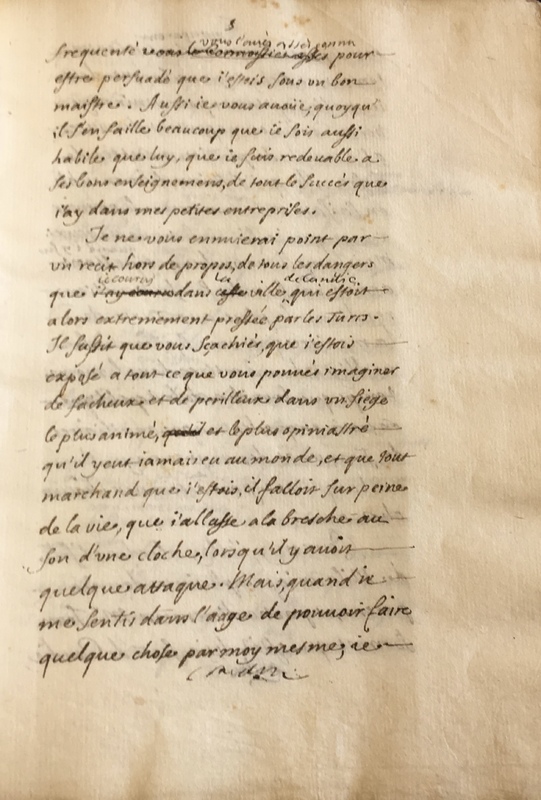 3
vous l'avés assés connu
frequenté vous le connoissiés assés pour
estre persuadé que i'estois sous un bon
maistre. Aussi ie vous auoüe, quoyqu'
il s'en faille beaucoup que ie sois aussi
habile que luy, que ie suis redeuable a
ses bons enseignemens, de tout le succés que
i'ay dans mes petites entreprises.
Je ne vous ennuierai point par
vn recit hors de propos, de tous les dangers
ie courus la de Candie
que i'ay courus dans cette ville, qui estoit
alors extremement pressée par les Turcs.
Il suffit que vous sçachiés, que i'estois
exposé a tout ce que vous pouués imaginer
de facheux et de perilleux dans vn siege
le plus animé, et le plus opiniastré
qu'il y eut iamais eu au monde, et que tout
marchand que i'estois, il falloit sur peine
de la vie, que i'allasse a la bresche au
son d'vne cloche, lorsqu'il y auoit
quelque attaque. Mais, quand ie
me sentis dans l'aage de pouuoir faire
quelque chose par moy mesme, ie